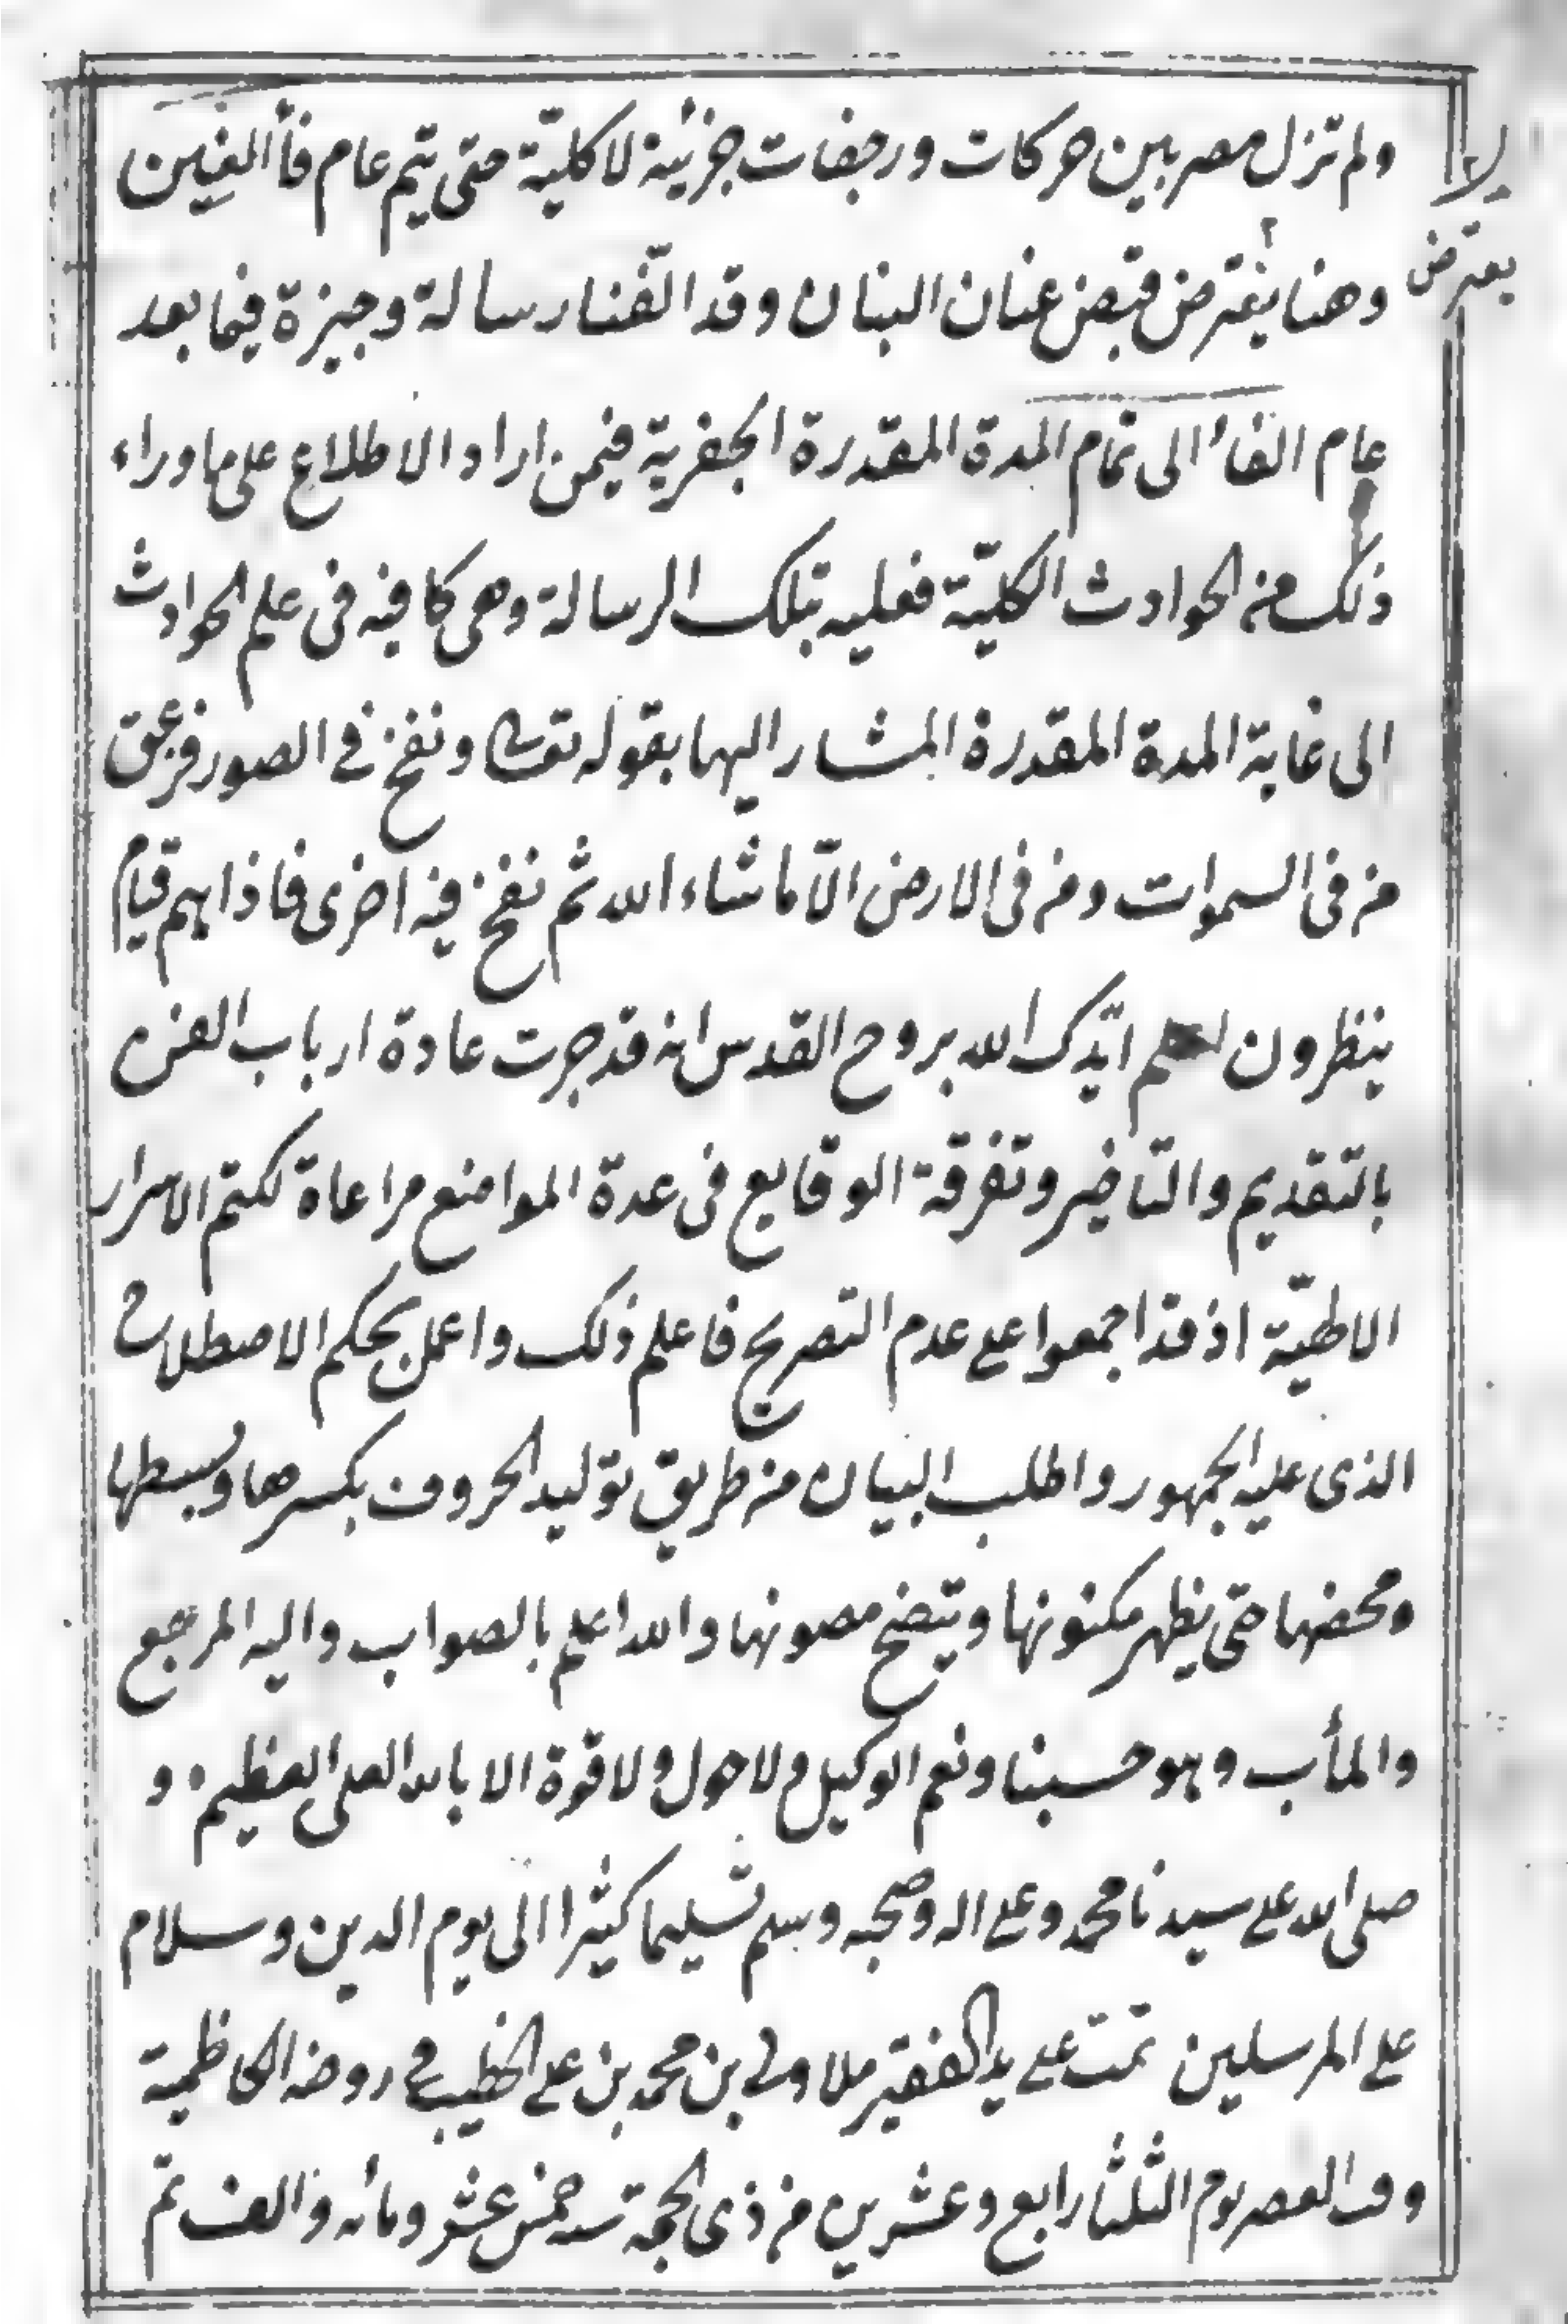 ولم تزل مصر بين حركات ورجفات جزئية لا كلية حتى يتم عام فأ الغين
لا
يعترض
وهنا يفترض قبض عنان البنان وقد الفنا رسالة وجيزة فيما بعد
عام الى تمام المدة المقدرة الجفرية فيمن اراد الاطلاع على ما وراء
ذلك من الحوادث الكليّة فعليه بتلك الرسالة وهى كافيه فى علم الحوادث
الى غاية المدة المقدرة المشار اليها بقوله تعالى ونفخ في الصور فصعق
من فى السموات ومن فى الارض الّا ما شاء الله ثم نفخ فيه اخرى فاذا هم قيام
ينظرون اعلم ايّدك الله بروح القدس انه قد جرت عادة ارباب الفن
بالتقديم والتاخير وتفرقة الوقايع فى عدة المواضع مراعاة لكتم الاسرار
الاطهيّة اذ قد اجمعوا على عدم التصريح فاعلم ذلك واعمل بحكم الاصطلاح
الذى عليه الجمهور واطلب البيان من طريق توليد الحروف بكسرها وبسطها
ومحضها حتى يظهر مكنونها ويتضح مصونها والله اعلم بالصواب واليه المرجع
والمأب وهو حسبنا ونعم الوكيل ولا حول ولا قوة الا بالله العلى العظيم و
صلى الله على سيدنا محمد وعلى اله وصحبه وسلم تسليما كثيرا الى يوم الدين وسلام
على المرسلين تمت على يد الفقير ملا ولي بن محمد بن على الخطيب في روضه الكاظمية
وقت العصر يوم الثلثا رابع وعشرين من ذى الحجة سنه خمس عشر ومائه والف تم